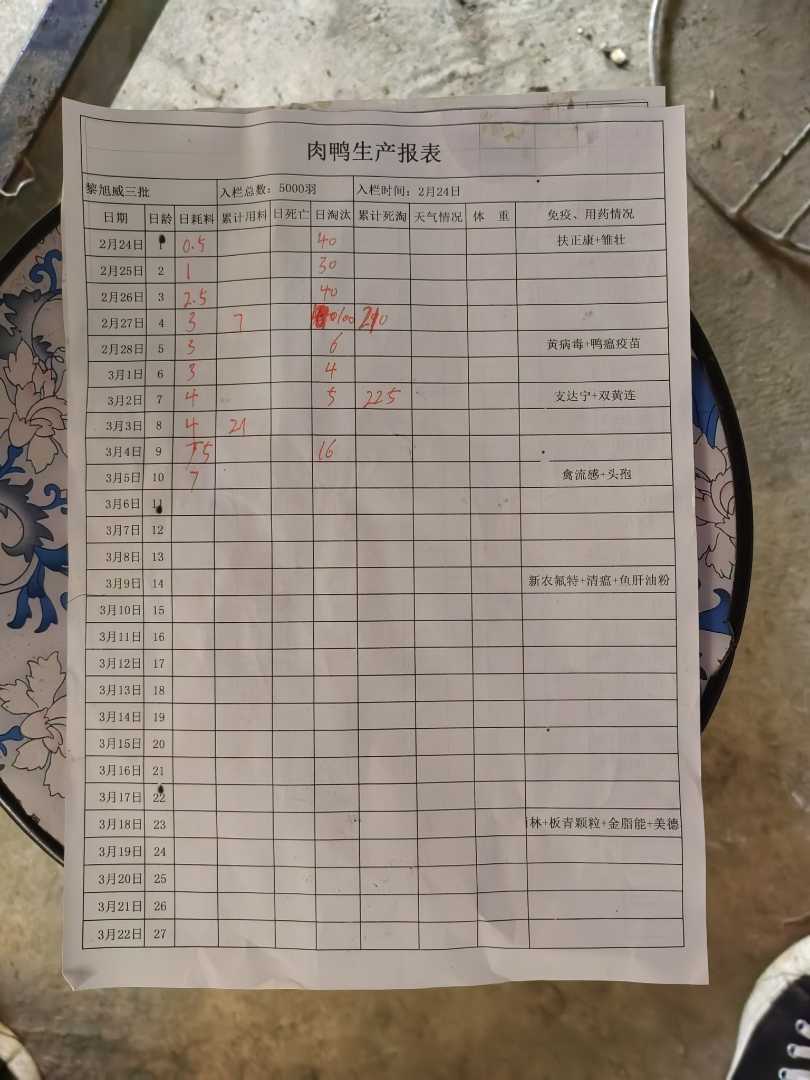 肉鸭生产报表
黎旭威三批 入栏总数：5000羽 入栏时间：2月24日
日期 日龄 日耗料 累计用料 日死亡 日淘汰 累计死淘 天气情况 体 重 免疫、用药情况
2月24日 1 0.5 40 扶正康+雏壮
2月25日 2 1 30
2月26日 3 2.5 40
2月27日 4 3 7 100 210
2月28日 5 3 6 黄病毒+鸭瘟疫苗
3月1日 6 3 4
3月2日 7 4 5 225 支达宁+双黄连
3月3日 8 4 21
3月4日 9 16
3月5日 10 7 禽流感+头孢
3月6日 11
3月7日 12
3月8日 13
3月9日 14 新农氟特+清瘟+鱼肝油粉
3月10日 15
3月11日 16
3月12日 17
3月13日 18
3月14日 19
3月15日 20
3月16日 21
3月17日 22
3月18日 23 林+板青颗粒+金脂能+美德
3月19日 24
3月20日 25
3月21日 26
3月22日 27